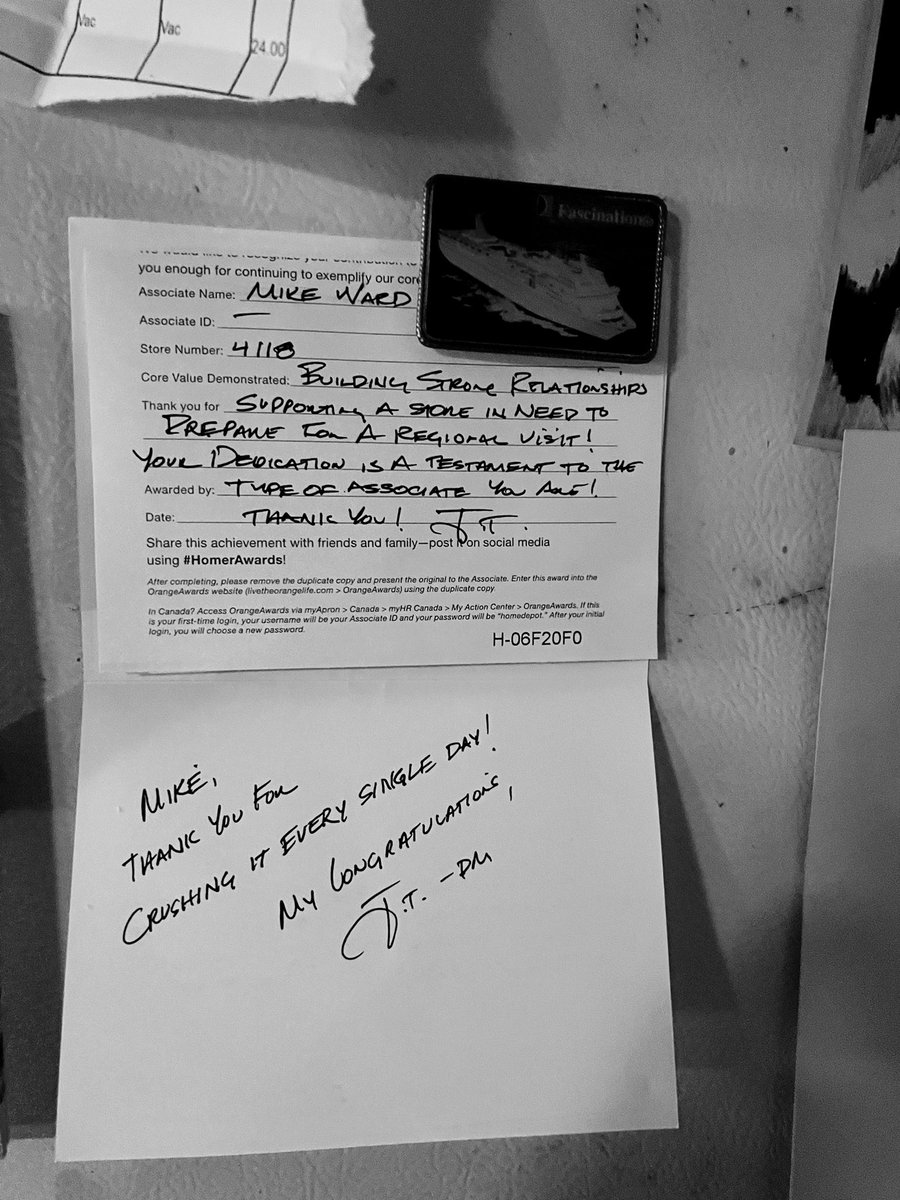 Vac
Vac
24.00
Fascination
We would like to recognize your contribution to
you enough for continuing to exemplify our core
Associate Name: MIKE WARD
Associate ID: —
Store Number: 4118
Core Value Demonstrated: BUILDING STRONG RELATIONSHIPS
Thank you for SUPPORTING A STORE IN NEED TO
PREPARE FOR A REGIONAL VISIT!
YOUR DEDICATION IS A TESTAMENT TO THE
Awarded by: TYPE OF ASSOCIATE YOU ARE!
Date: THANK YOU! J.T.
Share this achievement with friends and family—post it on social media
using #HomerAwards!
After completing, please remove the duplicate copy and present the original to the Associate. Enter this award into the
OrangeAwards website (livetheorangelife.com > OrangeAwards) using the duplicate copy
In Canada? Access OrangeAwards via myApron > Canada > myHR Canada > My Action Center > OrangeAwards. If this
is your first-time login, your username will be your Associate ID and your password will be "homedepot." After your initial
login, you will choose a new password.
H-06F20F0
MIKE,
THANK YOU FOR
CRUSHING IT EVERY SINGLE DAY!
MY CONGRATULATIONS,
J.T. -DM